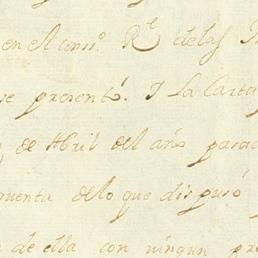 en el cons.º R.l de las
se presentó. Y la Carta
de Abril del año pasa
quenta de lo que dispusó
de ella con ningun pre